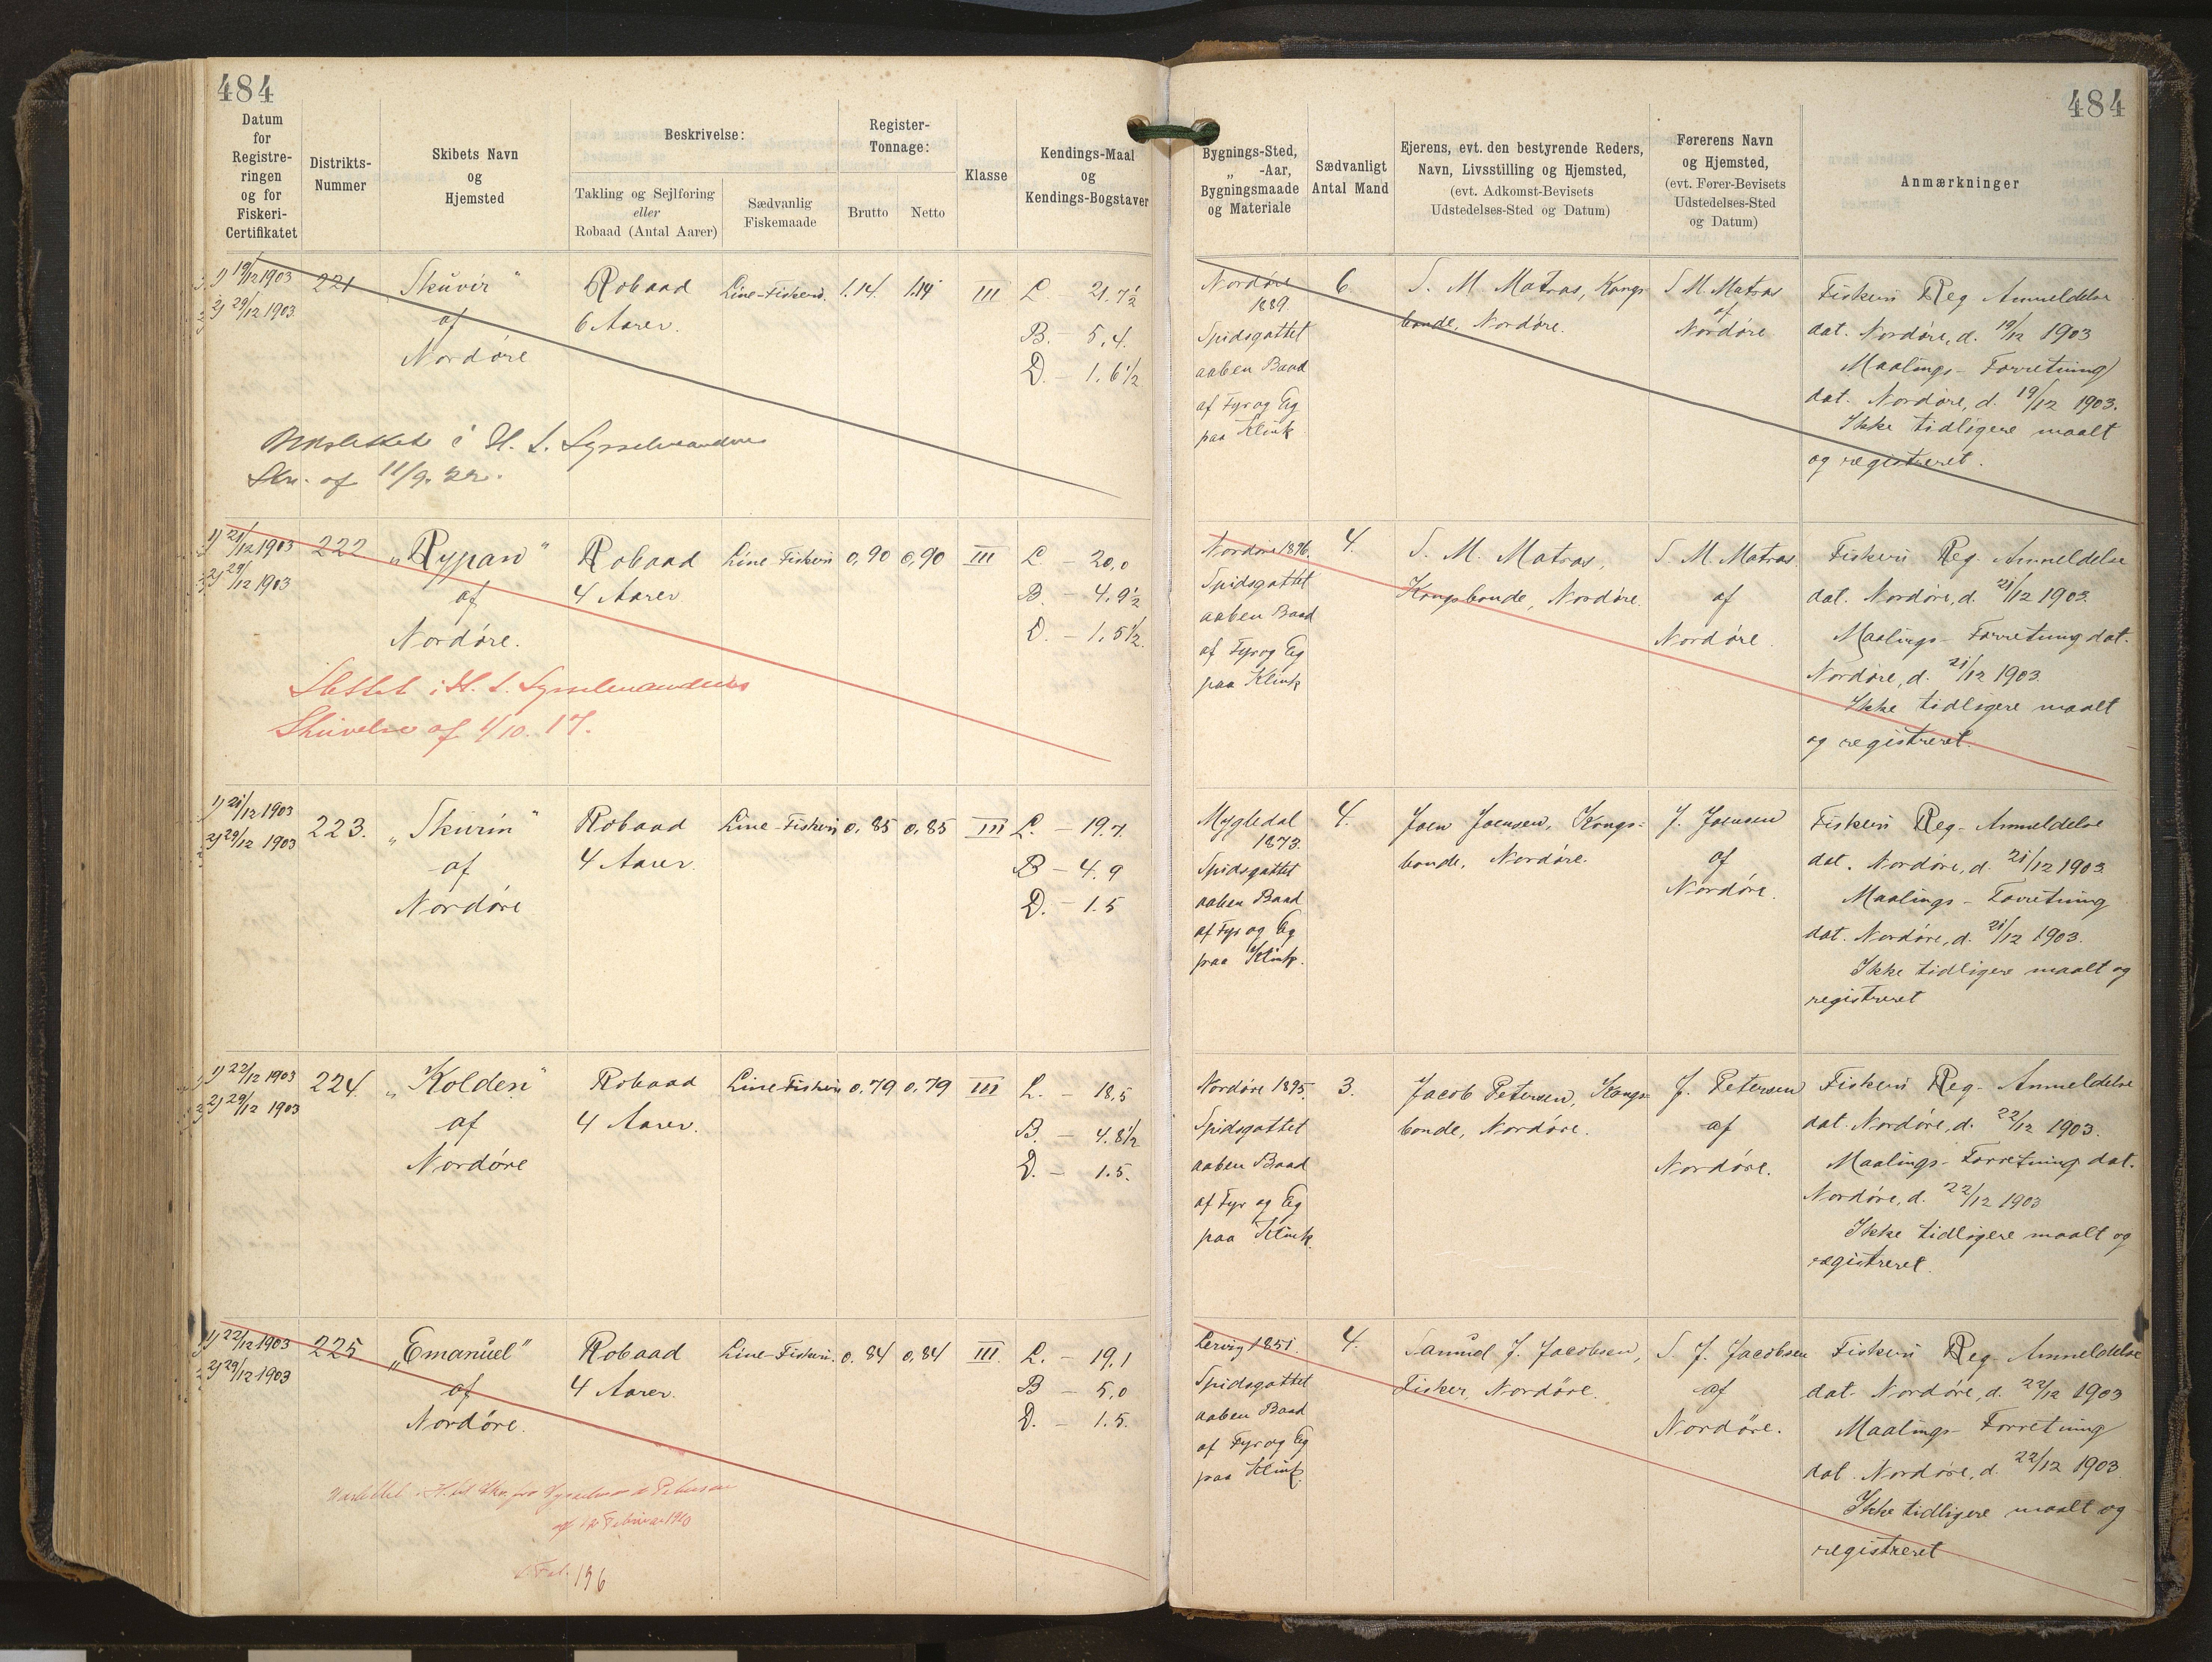 484
484
Datum for Registreringen og for Fiskeri-Certifikatet
Distrikts-Nummer
Skibets Navn og Hjemsted
Beskrivelse:
Takling og Sejlføring eller Robaad (Antal Aarer)
Sædvanlig Fiskemaade
Register-Tonnage:
Brutto
Netto
Klasse
Kendings-Maal og Kendings-Bogstaver
Bygnings-Sted, „ -Aar, Bygningsmaade og Materiale
Sædvanligt Antal Mand
Ejerens, evt. den bestyrende Reders, Navn, Livsstilling og Hjemsted, (evt. Adkomst-Bevisets Udstedelses-Sted og Datum)
Førerens Navn og Hjemsted, (evt. Fører-Bevisets Udstedelses-Sted og Datum)
Anmærkninger
1) 19/12 1903
2) 29/12 1903
221
Skuvir"
af
Nordøre
Robaad
6 Aarer.
Line-Fiskeri.
1.14.
1.14
III
L 21.7½
B. - 5.4.
D. - 1.6½
Nordøre
1889
Spidsgattet
aaben Baad
af Fyr og Eg
paa Klink
6
S. M. Matras, Kongs-
bonde, Nordøre.
S M. Matras
af
Nordøre
Fiskeri Reg Anmeldelse
dat. Nordøre, d. 19/12 1903
Maalings-Forretning
dat. Nordøre, d. 19/12 1903.
Ikke tidligere maalt
og registreret.
Udslettet i H. t. Sysselmandens
Skr. af 11/9. 22.
1) 21/12 1903
2) 29/12 1903
222
„Rypan"
af
Nordøre.
Robaad
4 Aarer
Line Fiskeri
0,90
0,90
III
L - 20,0
B. - 4.9½
D. - 1.5½.
Nordøre 1896.
Spidsgattet
aaben Baad
af Fyr og Eg
paa Klink
4.
S. M. Matras,
Kongsbonde, Nordøre.
S. M. Matras.
af
Nordøre.
Fiskeri Reg. Anmeldelse
dat. Nordøre, d. 21/12 1903.
Maalings-Forretning dat.
Nordøre, d. 21/12 1903.
Ikke tidligere maalt
og registreret.
Slettet i H. t. Sysselmandens
Skrivelse af 1/10. 17.
1) 21/12 1903
2) 29/12 1903
223.
„Skurin"
af
Nordøre
Robaad
4 Aarer.
Line-Fiskeri
0,85
0,85
III
L. - 19.7.
B - 4.9
D. - 1.5
Mygledal
1873.
Spidsgattet
aaben Baad
af Fyr og Eg
paa Klink.
4.
Joen Joensen, Kongs-
bonde, Nordøre.
J. Joensen
af
Nordøre.
Fiskeri Reg-Anmeldelse
dat. Nordøre, d. 21/12 1903.
Maalings-Forretning
dat. Nordøre, d. 21/12 1903.
Ikke tidligere maalt og
registreret
1) 22/12 1903
2) 29/12 1903
224.
„Kolden"
af
Nordøre
Robaad
4 Aarer.
Line Fiskeri
0,79
0,79
III
L. - 18.5
B. - 4.8½
D. - 1.5.
Nordøre 1895.
Spidsgattet
aaben Baad
af Fyr og Eg
paa Klink.
3.
Jacob Petersen, Kongs-
bonde, Nordøre.
J. Petersen
af
Nordøre.
Fiskeri Reg-Anmeldelse
dat. Nordøre, d. 22/12 1903.
Maalings-Forretning dat.
Nordøre, d. 22/12 1903
Ikke tidligere maalt og
registreret.
1) 22/12 1903
2) 29/12 1903
225
„Emanuel"
af
Nordøre.
Robaad
4 Aarer.
Line-Fiskeri.
0.84
0,84
III.
L. - 19,1
B - 5,0
D. - 1.5.
Lervig 1851.
Spidsgattet
aaben Baad
af Fyr og Eg
paa Klink.
4.
Samuel J. Jacobsen,
Fisker, Nordøre.
S. J. Jacobsen
af
Nordøre.
Fiskeri Reg-Anmeldelse
dat. Nordøre, d. 22/12 1903
Maalings-Forretning
dat. Nordøre, d. 22/12 1903.
Ikke tidligere maalt og
registreret
Udslettet
Petersen
af Februar 1910
Fol. 196